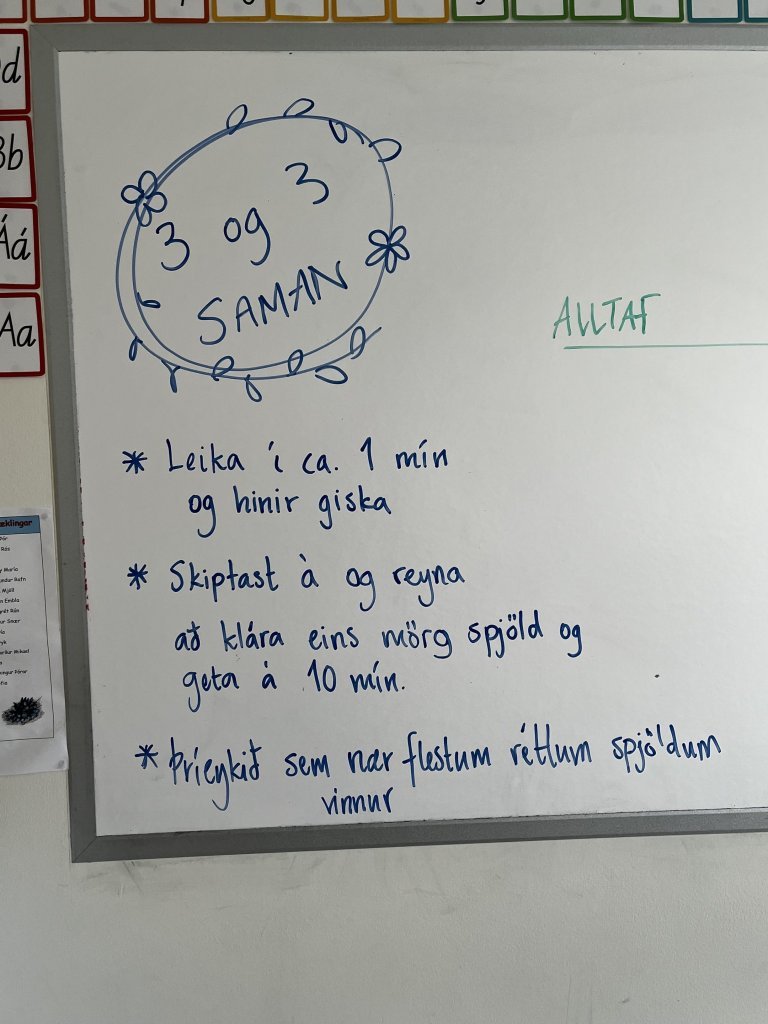 d
Bb
Áá
Aa
3 og 3
SAMAN
ALLTAF
* Leika í ca. 1 mín
og hinir giska
* Skiptast à og reyna
að klára eins mörg spjöld og
geta à 10 mín.
* Þríeykið sem nær flestum réttum spjöldum
vinnur